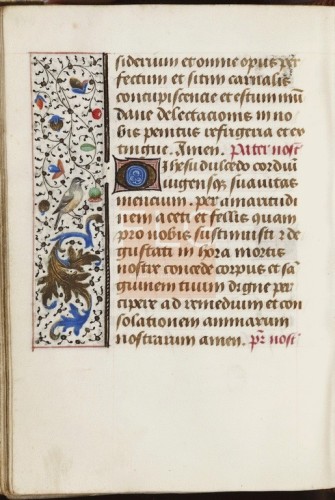 siderium et omne opus per
fectum et sitim carnalis
concupiscencie et estum mū
dane delectacionis in no
bis penitus refrigera et ex
tingue. Amen. Pater nost̄
O Ihesu dulcedo cordiū
uigensqꝫ suauitas
mencium. per amaritudi
nem aceti et fellis quam
pro nobis sustinuisti ⁊ de
gustasti in hora mortis
nostre concede corpus et sā
guinem tuum digne per
cipere ad remedium et con
solationem animarum
nostrarum amen. pr̄ nost̄